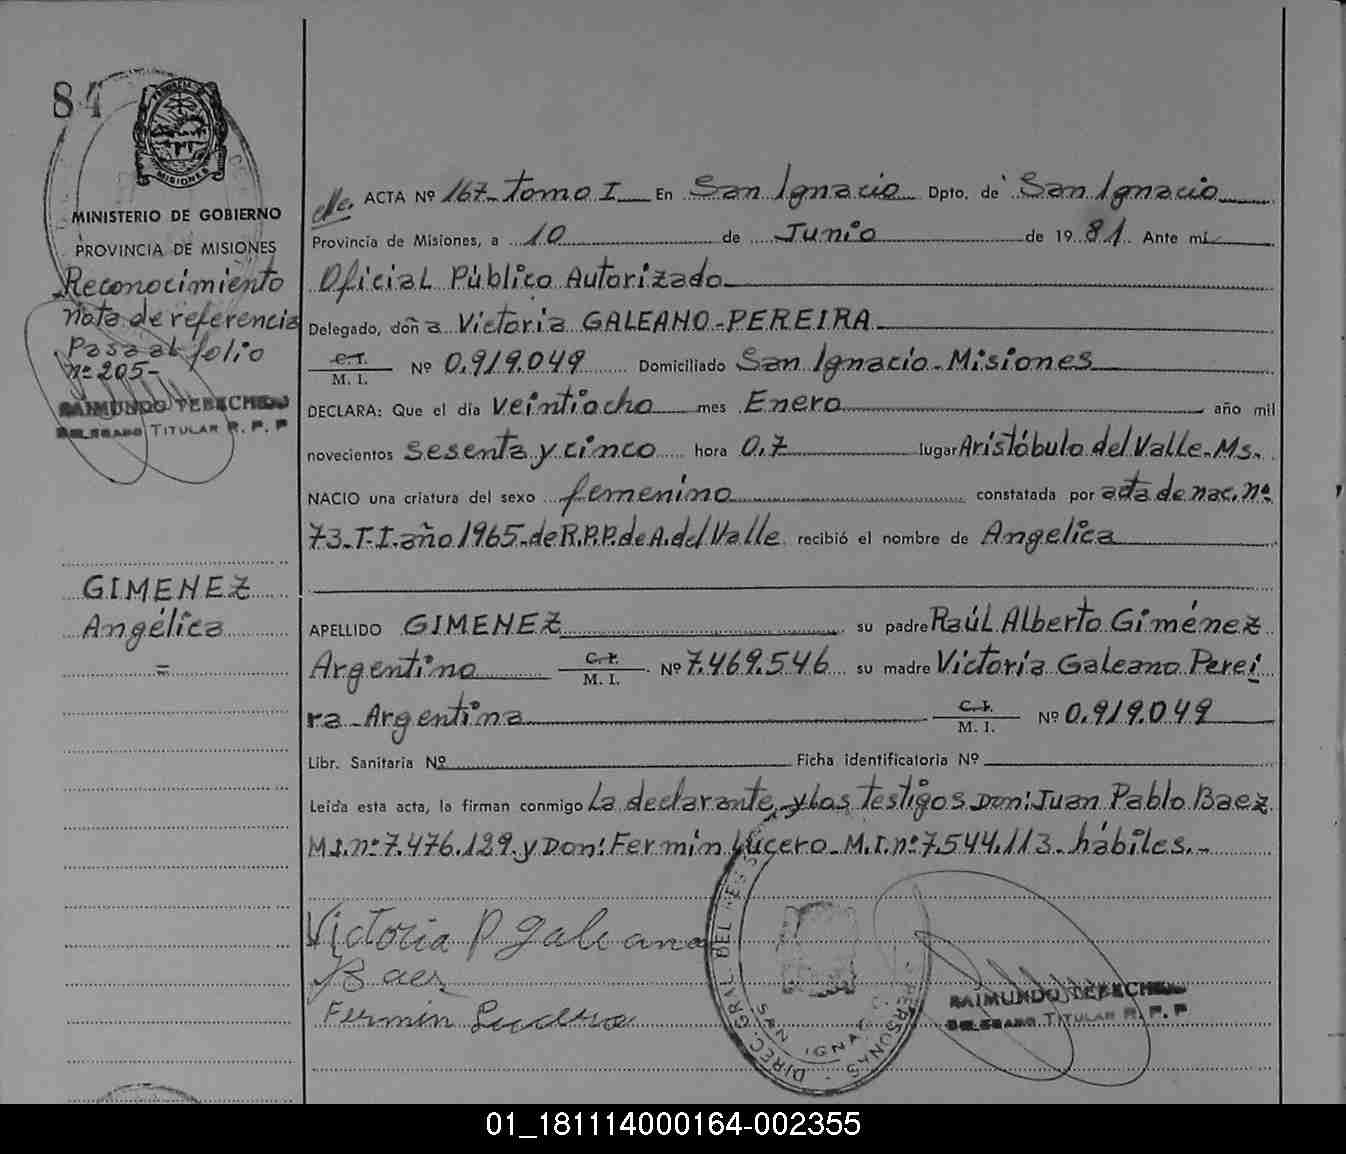 84
MISIONES
MINISTERIO DE GOBIERNO
PROVINCIA DE MISIONES
Reconocimiento
Nota de referencia
Pasa al folio
nº 205-
RAIMUNDO TEBECHERI
DELEGADO TITULAR R. P. P
GIMENEZ
Angélica
=
ACTA Nº 167- Tomo I En San Ignacio Dpto. de San Ignacio
Provincia de Misiones, a 10 de Junio de 1981. Ante mi
Oficial Público Autorizado
Delegado, doña Victoria GALEANO-PEREIRA
C.I. M. I. Nº 0.919.049 Domiciliado San Ignacio-Misiones
DECLARA: Que el día veintiocho mes Enero año mil
novecientos sesenta y cinco hora 0,7 lugar Aristóbulo del Valle-Ms.
NACIO una criatura del sexo femenino constatada por acta de nac. nº
73-T-I-año 1965-de R.P.P. de A. del Valle recibió el nombre de Angelica
APELLIDO GIMENEZ su padre Raúl Alberto Giménez
Argentino C.I. M. I. Nº 7.469.546 su madre Victoria Galeano Perei
ra-Argentina C.I. M. I. Nº 0.919.049
Libr. Sanitaria Nº Ficha identificatoria Nº
Leída esta acta, la firman conmigo La declarante y los testigos Don: Juan Pablo Baez
M.I. nº 7.476.129 y Don: Fermín Lucero-M.I. nº 7.544.113-hábiles.-
Victoria P Galeano
Baez
Fermin Lucero
DIREC. GRAL. DEL REG. PERSONAS
SAN IGNACIO
RAIMUNDO TEBECHERI
DELEGADO TITULAR R. P. P
01_181114000164-002355